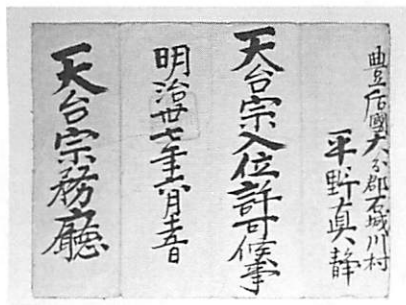 豊后國大分郡石城川村
平野真静
天台宗入位許可候事
明治廿七年六月五日
天台宗務廳